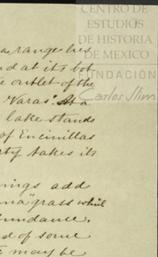 CENTRO DE
ESTUDIOS
DE HISTORIA
DE MEXICO
FUNDACIÓN
Carlos Slim
range lies
nd at its bot
outlet of the
Varas". At a
lake stands
of Encinillas
rty takes its
ings add
ma" grass which
undance,
d of some
may be